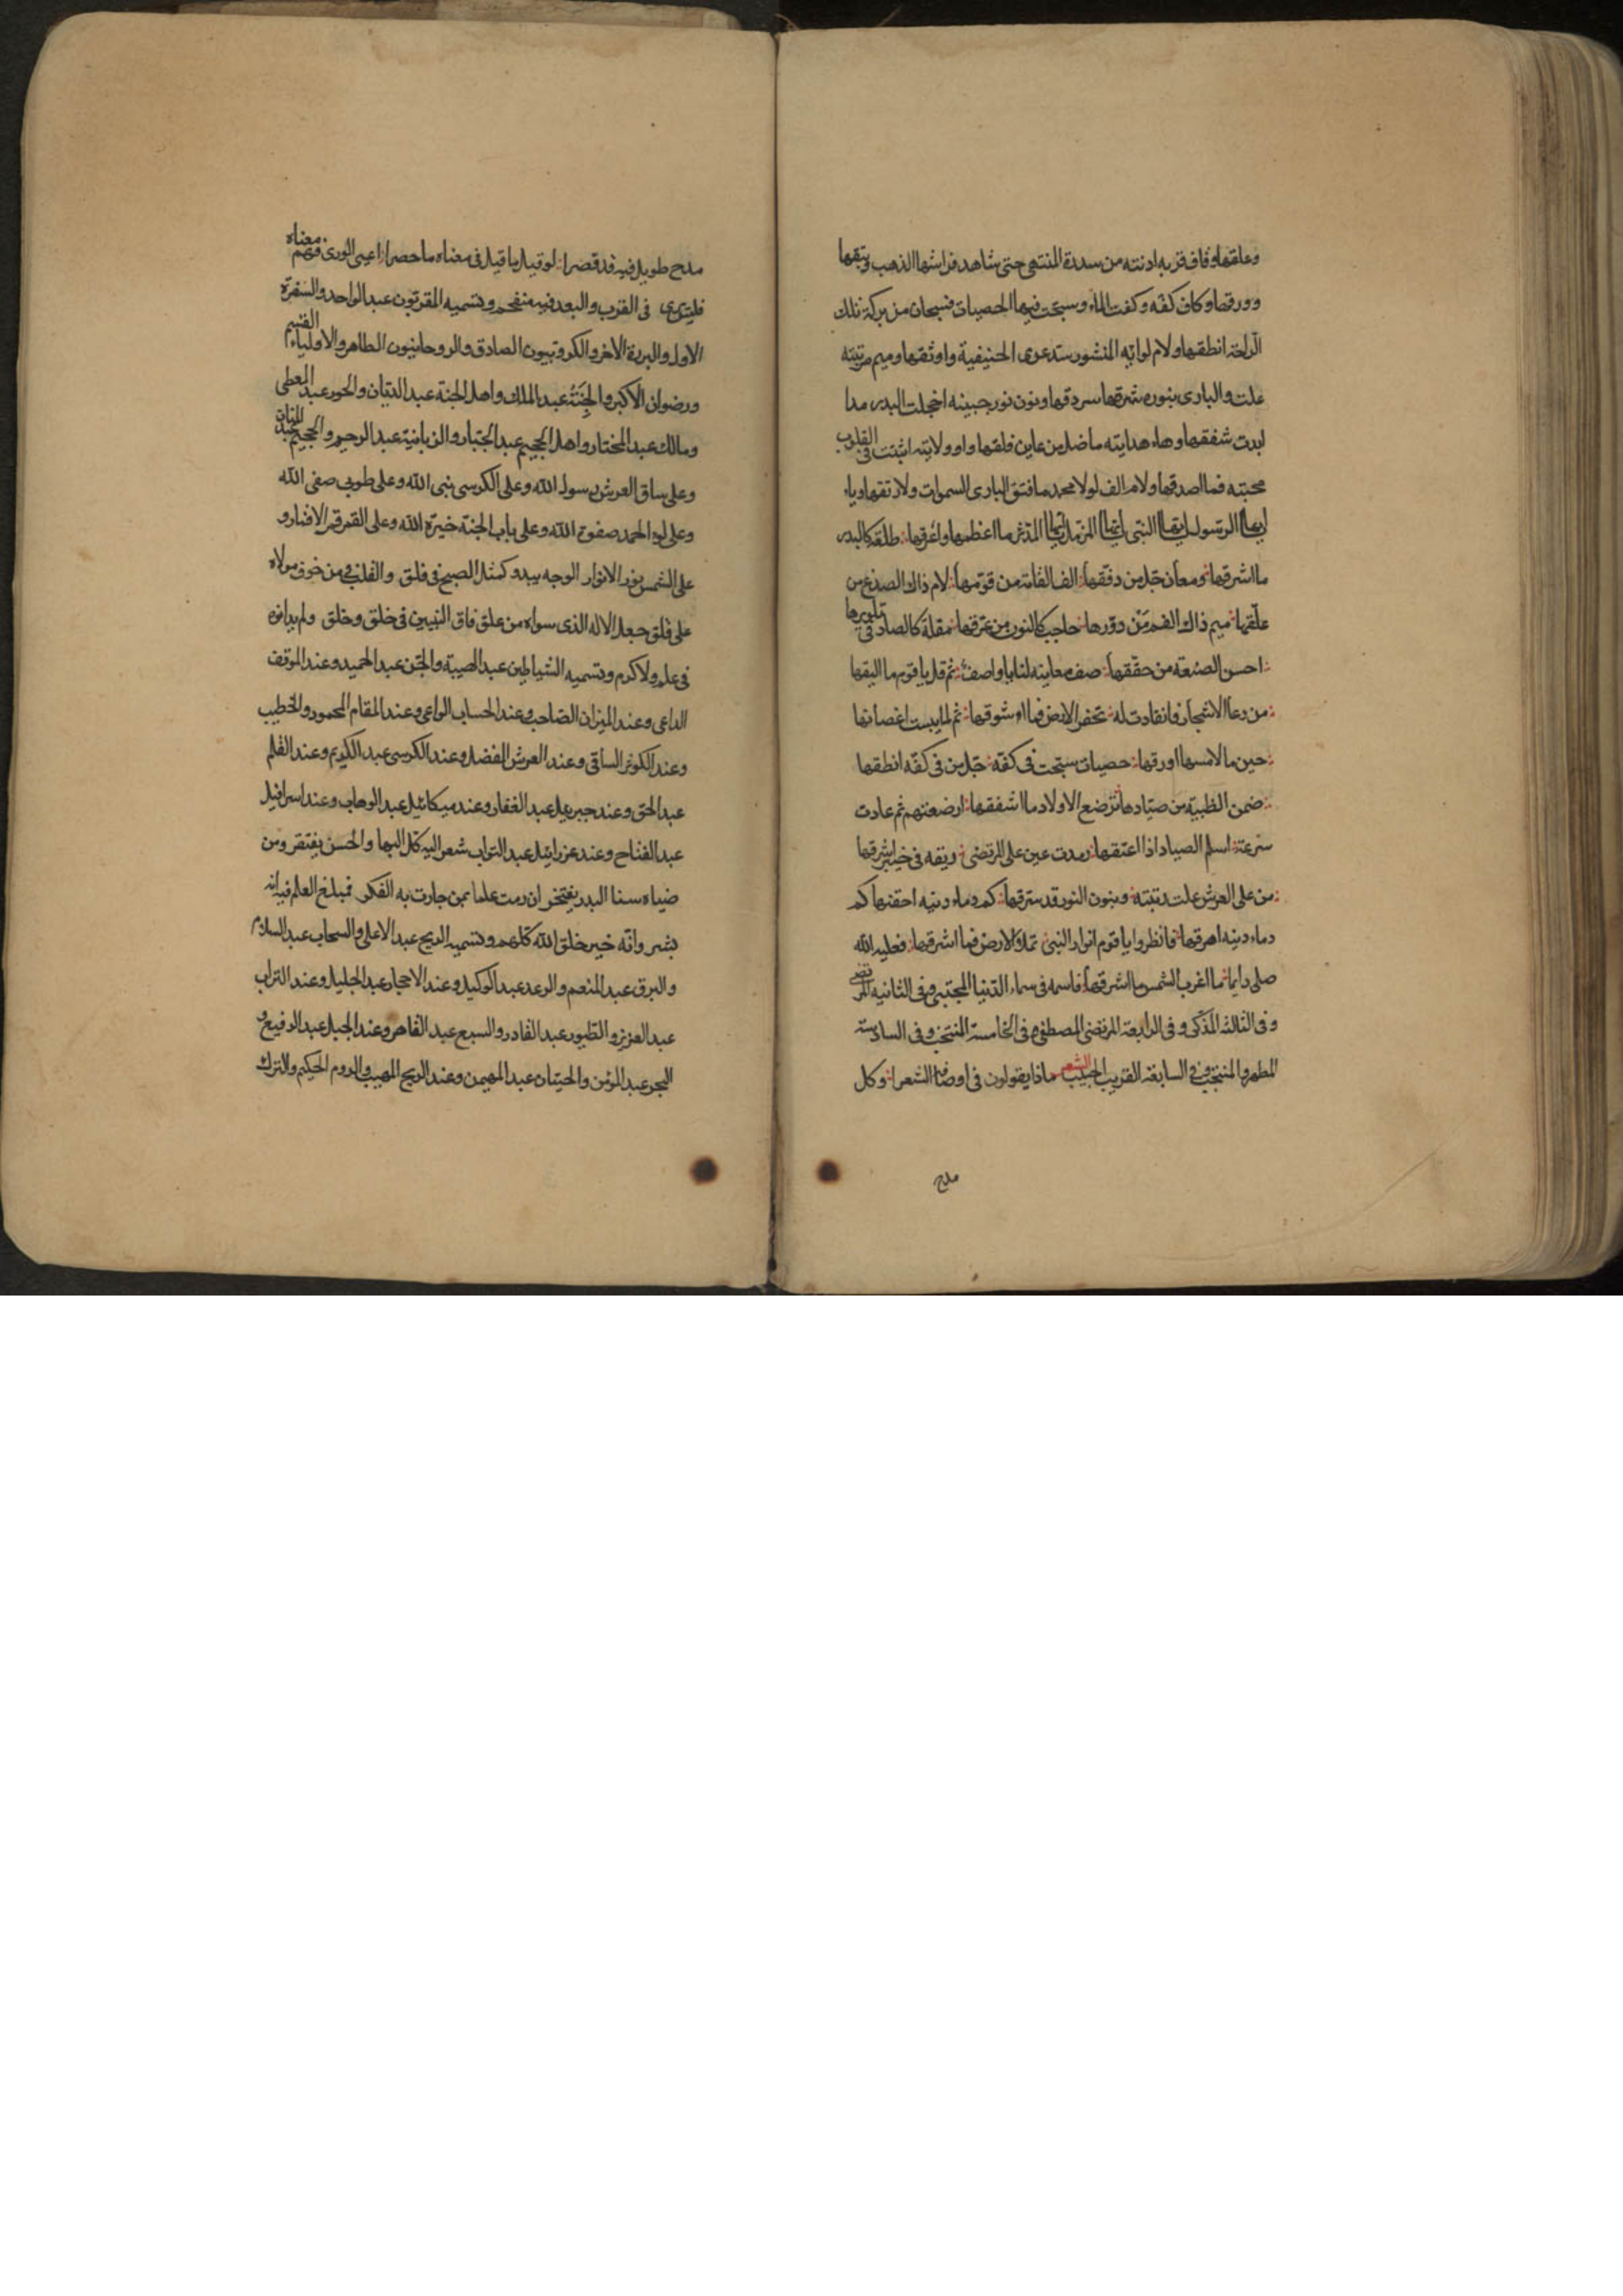 وعلقها وقاف قربه ادنته من سدرة المنتهى حتى شاهد فراشها الذهب ونبقها
وورقها وكاف كفه وكفت الماء وسبحت فيها الحصيات فسبحان من بركة تلك
الراحة انطقها ولام لوايه المنشور ستدعوى الحنيفية واوثقها وميم مرتبته
علت والبارى بنوره شرقها سردقها ونون نور جبينه اخجلت البدر مدا
ابدت شفقها وهاء هدايته ماضل من عاين فلقها وواو ولايته اثبتت فى القلوب
محبته فما اصدقها ولام الف لولا محمد ما فتق البارى السموات ولا رتقها وياء
ايها الرسول ايها النبى ايها المزمل ايها المدثر ما اعظمها واعرقها طلعة كالبدر
ما اشرقها ومعان جل من دققها الف القامة من قومها لام ذاك الصدغ من
علقها ميم ذاك الفم من دورها حاجب كالنون من عرقها مقلة كالصاد فى تدويرها
احسن الصنعة من حققها صف معاينه لنا يا واصف ثم قل يا قوم ما اليقها
من دعا الاشجار فانقادت له تحفر الارض فما اشوقها ثم لما يبست اغصانها
حين ما لامسها اورقها حصيات سبحت فى كفه جل من فى كفه انطقها
ضمن الظبية من صيادها ترضع الاولاد ما اشفقها ارضعتهم ثم عادت
سرعة اسلم الصياد اذا اعتقها رمدت عين على المرتضى ريقه فى خيبر اشرقها
من على العرش علت رتبته وبنون النور قد سترقها كم دماء دنيه احقنها كم
دماء دينه اهرقها فانظروا يا قوم انوار النبى تملأ الارض فما اشرقها فعليه الله
صلى دايما ما اغرب الشمس ما اشرقها فاسمه فى سماء الدنيا المجتبى وفى الثانيه المرتضى
وفى الثالثة المزكى وفى الرابعة المرتضى المصطفى وفى الخامسة المنتخب وفى السادسة
المطهر والمنتجب وفى السابعة القريب الحبيب الشعر ماذا يقولون فى اوصافه الشعرا وكل
مدح
مدح طويل فيه قد قصرا لو قيل ما قيل فى معناه ما حصرا اعيى الورى فهم معناه
فليس يرى فى القرب والبعد فيه منفحم وتسميه المقربون عبد الواحد والسفرة
الاول والبررة الاخر والكروبيون الصادق والروحانيون الطاهر والاولياء القسم
ورضوان الاكبر والجنة عبد الملك واهل الجنة عبد الديان والحور عبد المعطى
ومالك عبد المختار واهل الجحيم عبد الجبار والزبانية عبد الرحيم والجحيم عبد المنان
وعلى ساق العرش رسول الله وعلى الكرسى نبى الله وعلى طوبى صفى الله
وعلى لواء الحمد صفوة الله وعلى باب الجنة خيرة الله وعلى القمر قمر الاقمار و
على الشمس نور الانوار الوجه يبدو كمثل الصبح فى فلق والقلب من خوف مولاه
على قلق جعل الاله الذى سواه من علق فاق النبيين فى خلق وخلق ولم يدانوه
فى علم ولا كرم وتسميه الشياطين عبد الهيبة والجن عبد الحميد وعند الموقف
الداعى وعند الميزان الصاحب وعند الحساب الواعى وعند المقام المحمود والخطيب
وعند الكوثر الساقى وعند العرش المفضل وعند الكرسى عبد الكريم وعند القلم
عبد الحق وعند جبريل عبد الغفار وعند ميكائيل عبد الوهاب وعند اسرافيل
عبد الفتاح وعند عزرائيل عبد التواب شعر اليه كل البها والحسن يفتقر ومن
ضياه سنا البدر يفتخر ان رمت علما بمن حارت به الفكر فمبلغ العلم فيه انه
بشر وانه خير خلق الله كلهم وتسميه الريح عبد الاعلى والسحاب عبد السلام
والبرق عبد المنعم والرعد عبد الوكيل وعند الاحجار عبد الجليل وعند التراب
عبد العزيز والطيور عبد القادر والسبع عبد القاهر وعند الجبل عبد الرفيع و
البحر عبد المؤمن والحيتان عبد المهيمن وعند الريح المهيب والروم الحكيم والترك